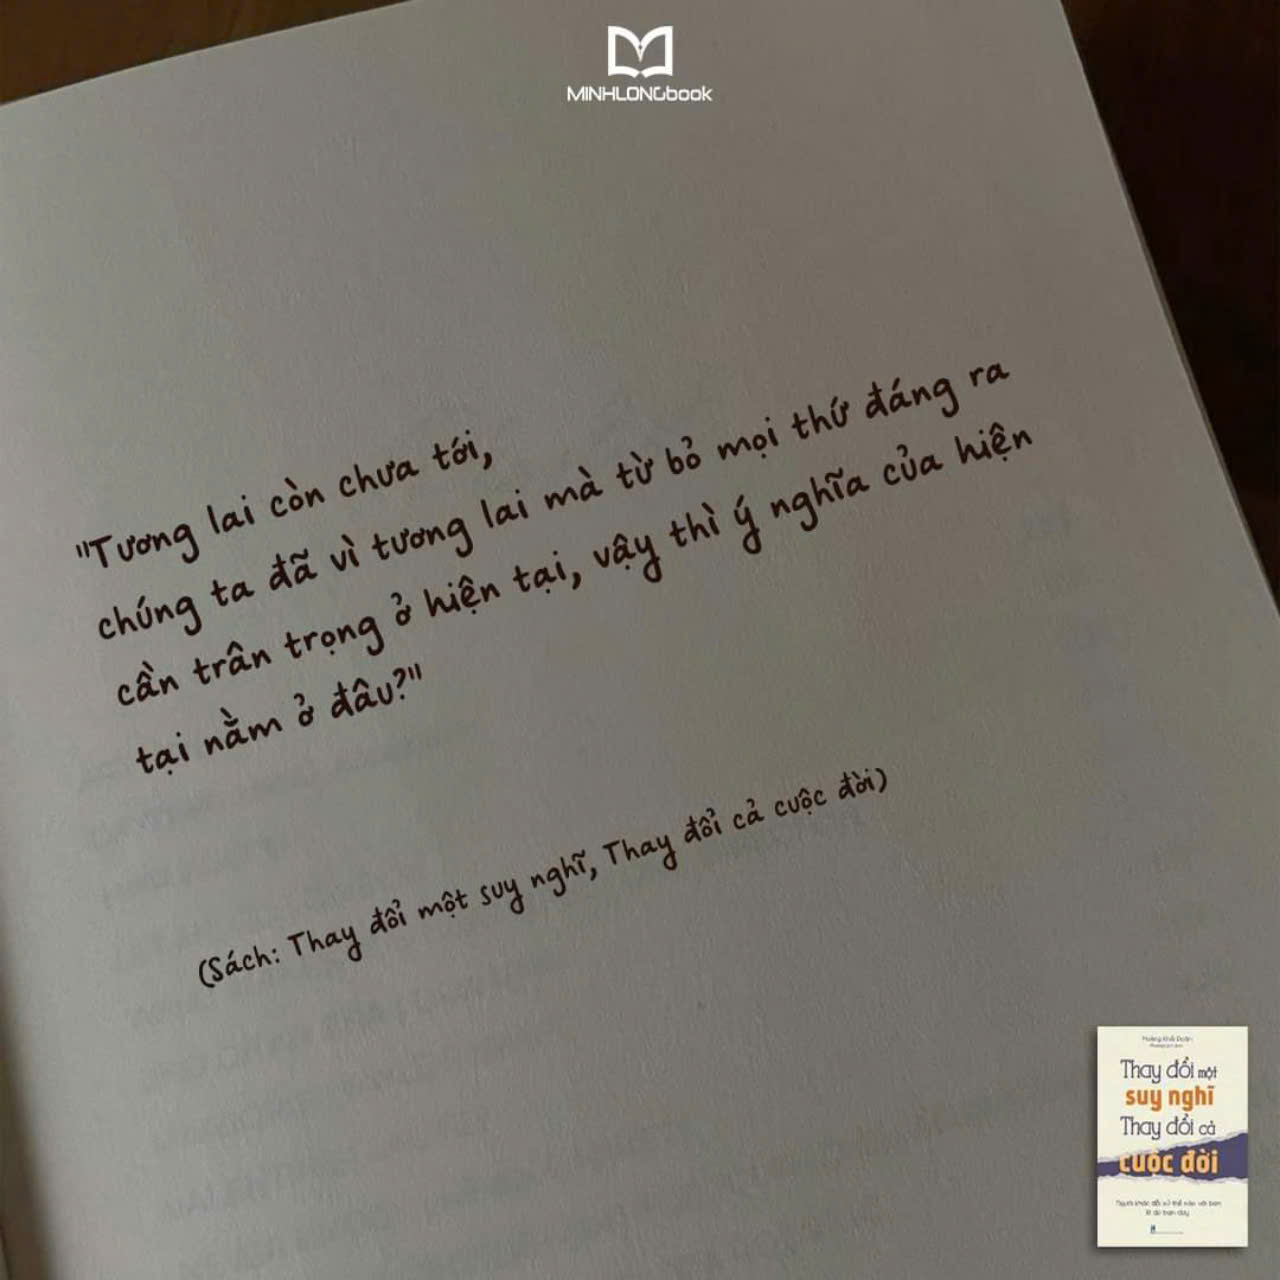 MINHLONGbook
"Tương lai còn chưa tới,
chúng ta đã vì tương lai mà từ bỏ mọi thứ đáng ra
cần trân trọng ở hiện tại, vậy thì ý nghĩa của hiện
tại nằm ở đâu?"
(Sách: Thay đổi một suy nghĩ, Thay đổi cả cuộc đời)
Thay đổi một
suy nghĩ
Thay đổi cả
cuộc đời